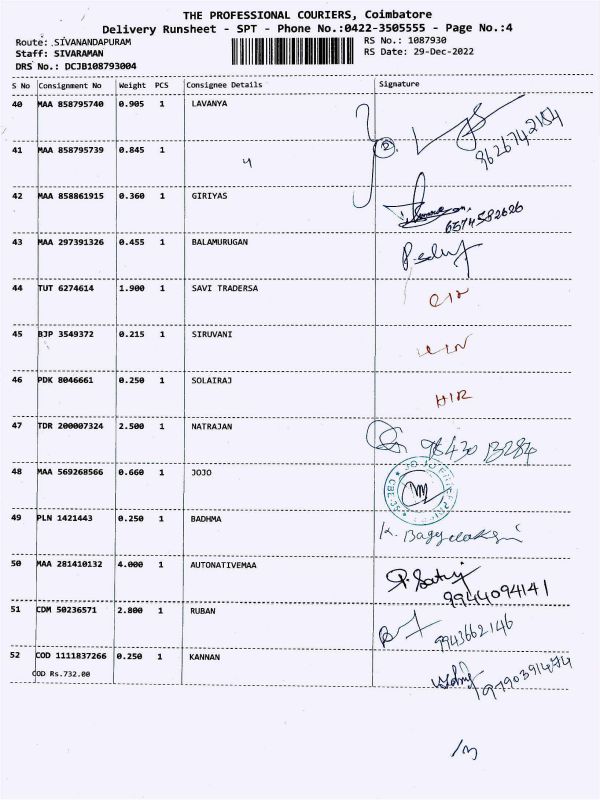 THE PROFESSIONAL COURIERS, Coimbatore
Delivery Runsheet - SPT - Phone No.:0422-3505555 - Page No.:4
Route: SIVANANDAPURAM RS No.: 1087930
Staff: SIVARAMAN RS Date: 29-Dec-2022
DRS No.: DCJB108793004
S No Consignment No Weight PCS Consignee Details Signature
40 MAA 858795740 0.905 1 LAVANYA
9626742154
41 MAA 858795739 0.845 1 4 2
42 MAA 858861915 0.360 1 GIRIYAS
6374582626
43 MAA 297391326 0.455 1 BALAMURUGAN
44 TUT 6274614 1.900 1 SAVI TRADERSA
45 BJP 3549372 0.215 1 SIRUVANI
46 PDK 8046661 0.250 1 SOLAIRAJ
47 TDR 200007324 2.500 1 NATRAJAN 98430 13284
48 MAA 569268566 0.660 1 JOJO
49 PLN 1421443 0.250 1 BADHMA
50 MAA 281410132 4.000 1 AUTONATIVEMAA
9944094141
51 CDM 50236571 2.800 1 RUBAN
9943662146
52 COD 1111837266 0.250 1 KANNAN
COD Rs.732.00 9790391474